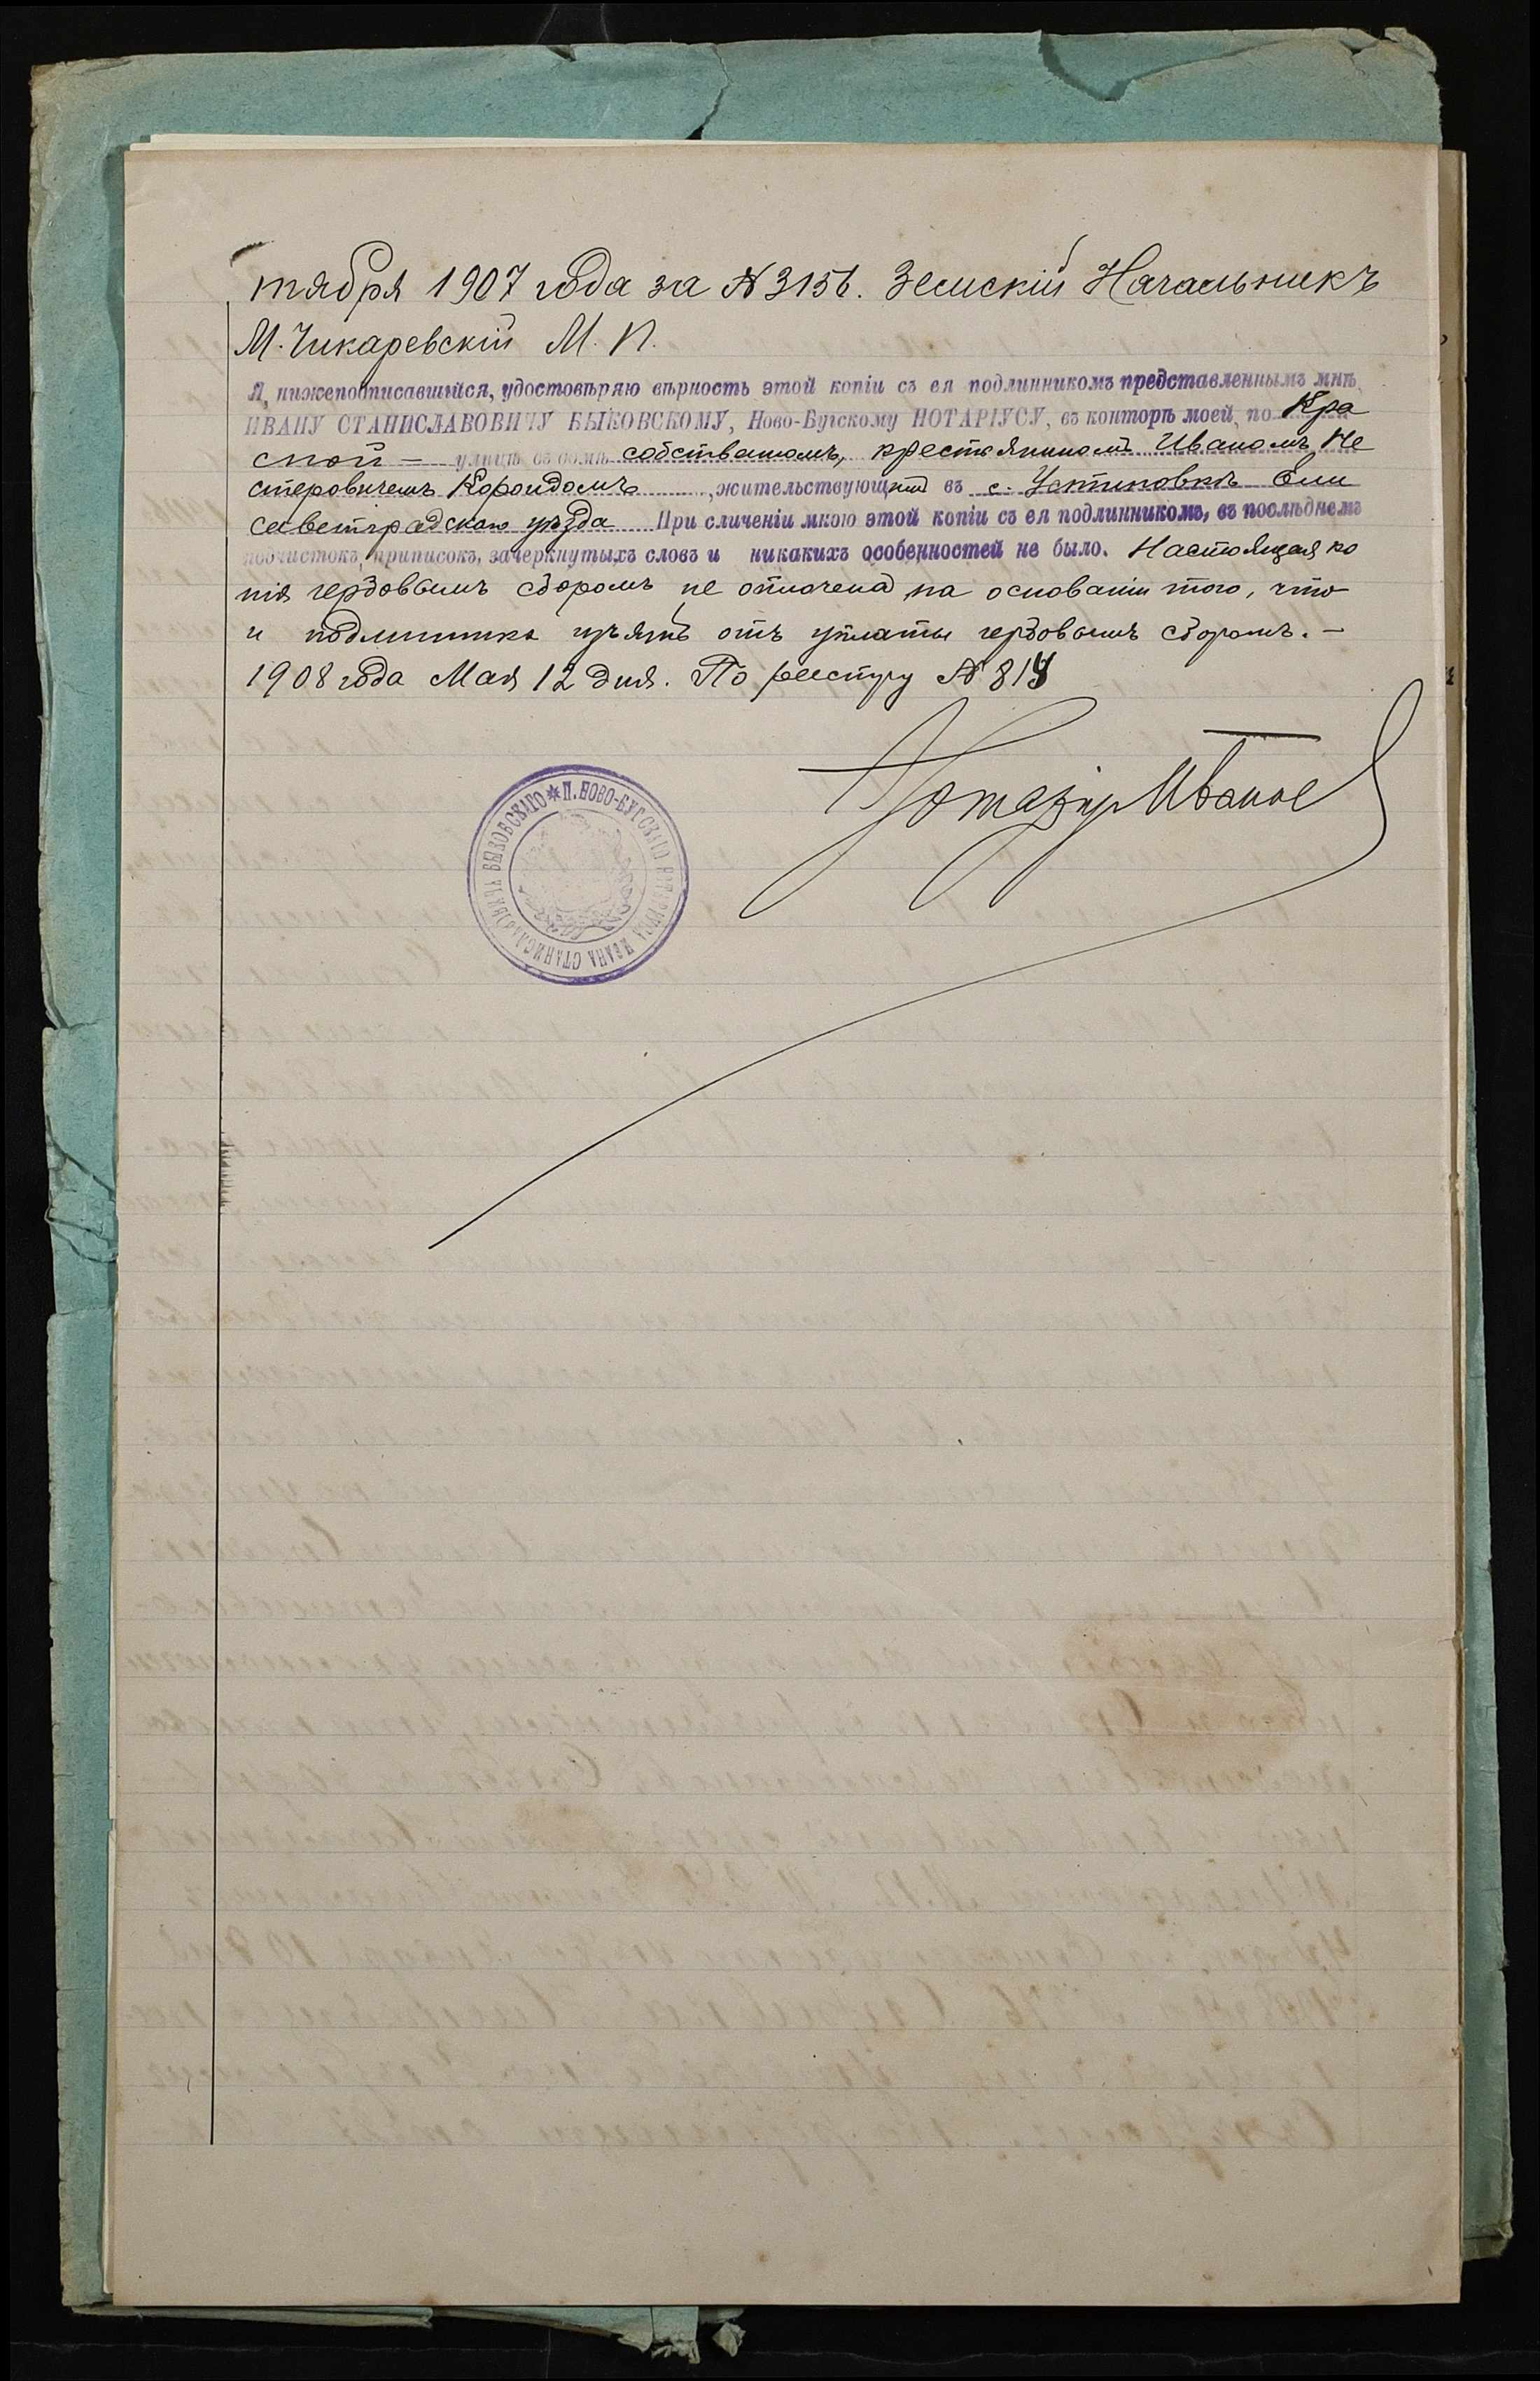 тября 1907 года за № 3156. Земскій Начальникъ
М. Чикаревскій М. П.
Я, нижеподписавшійся, удостовѣряю вѣрность этой копіи съ ея подлинникомъ представленнымъ мнѣ,
ИВАНУ СТАНИСЛАВОВИЧУ БЫКОВСКОМУ, Ново-Бугскому НОТАРІУСУ, въ конторѣ моей, по Кра
сной — улицѣ въ домѣ собственномъ, крестьяниномъ Иваномъ Не
стеровичемъ Короидомъ, жительствующимъ въ с. Устиновкѣ Ели
саветградскаго уѣзда При сличеніи мною этой копіи съ ея подлинникомъ, въ послѣднемъ
подчистокъ, приписокъ, зачеркнутыхъ словъ и никакихъ особенностей не было. Настоящая ко
пія гербовымъ сборомъ не оплочена на основаніи того, что
и подлинникъ изъятъ отъ уплаты гербовымъ сборомъ. —
1908 года Мая 12 дня. По реестру №
Нотаріус
* П. НОВО-БУГСКАГО НОТАРІУСА ИВАНА СТАНИСЛАВОВИЧА БЫКОВСКАГО